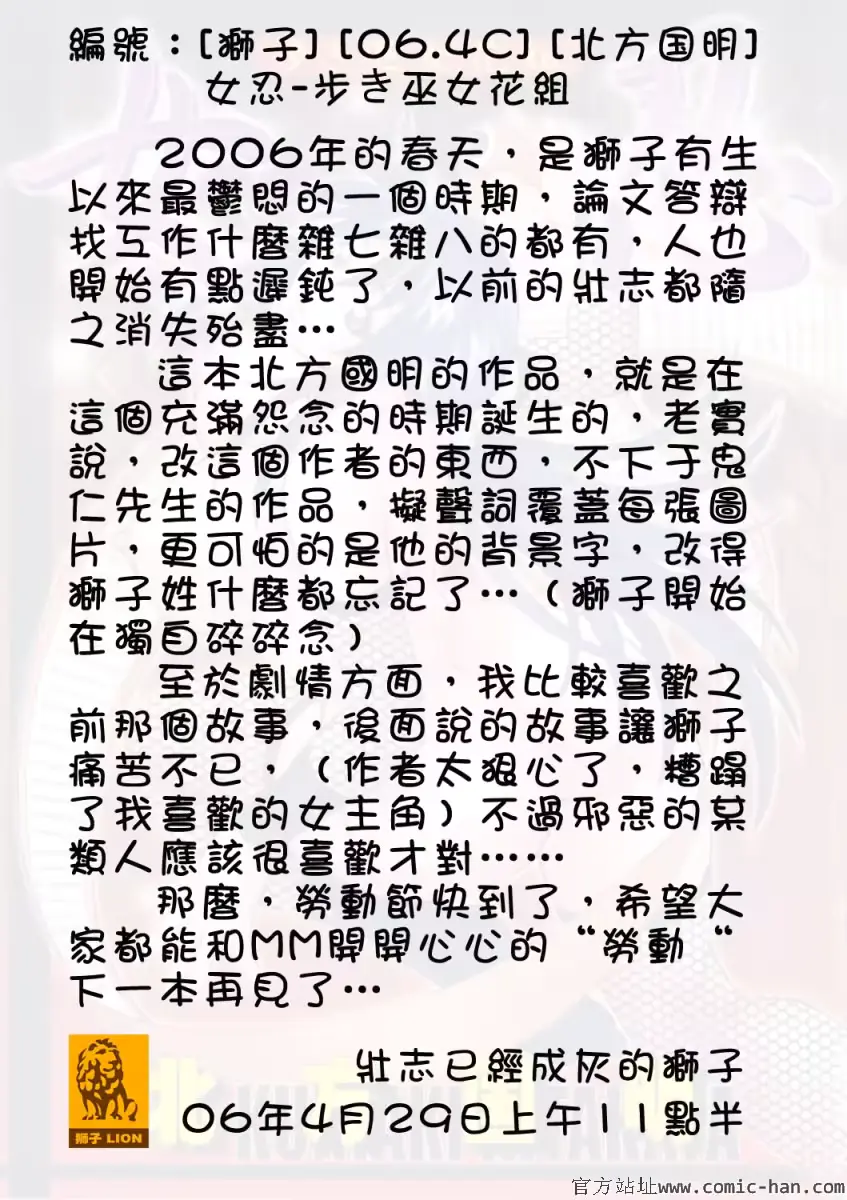 編號：[獅子][06.4C][北方国明]
女忍-步き巫女花組
2006年的春天，是獅子有生
以來最鬱悶的一個時期，論文答辯
找工作什麼雜七雜八的都有，人也
開始有點遲鈍了，以前的壯志都隨
之消失殆盡…
這本北方國明的作品，就是在
這個充滿怨念的時期誕生的，老實
說，改這個作者的東西，不下于鬼
仁先生的作品，擬聲詞覆蓋每張圖
片，更可怕的是他的背景字，改得
獅子姓什麼都忘記了…（獅子開始
在獨自碎碎念）
至於劇情方面，我比較喜歡之
前那個故事，後面說的故事讓獅子
痛苦不已，（作者太狠心了，糟蹋
了我喜歡的女主角）不過邪惡的某
類人應該很喜歡才對……
那麼，勞動節快到了，希望大
家都能和MM開開心心的“勞動“
下一本再見了…
壯志已經成灰的獅子
06年4月29日上午11點半
狮子 LION
官方站址www.comic-han.com